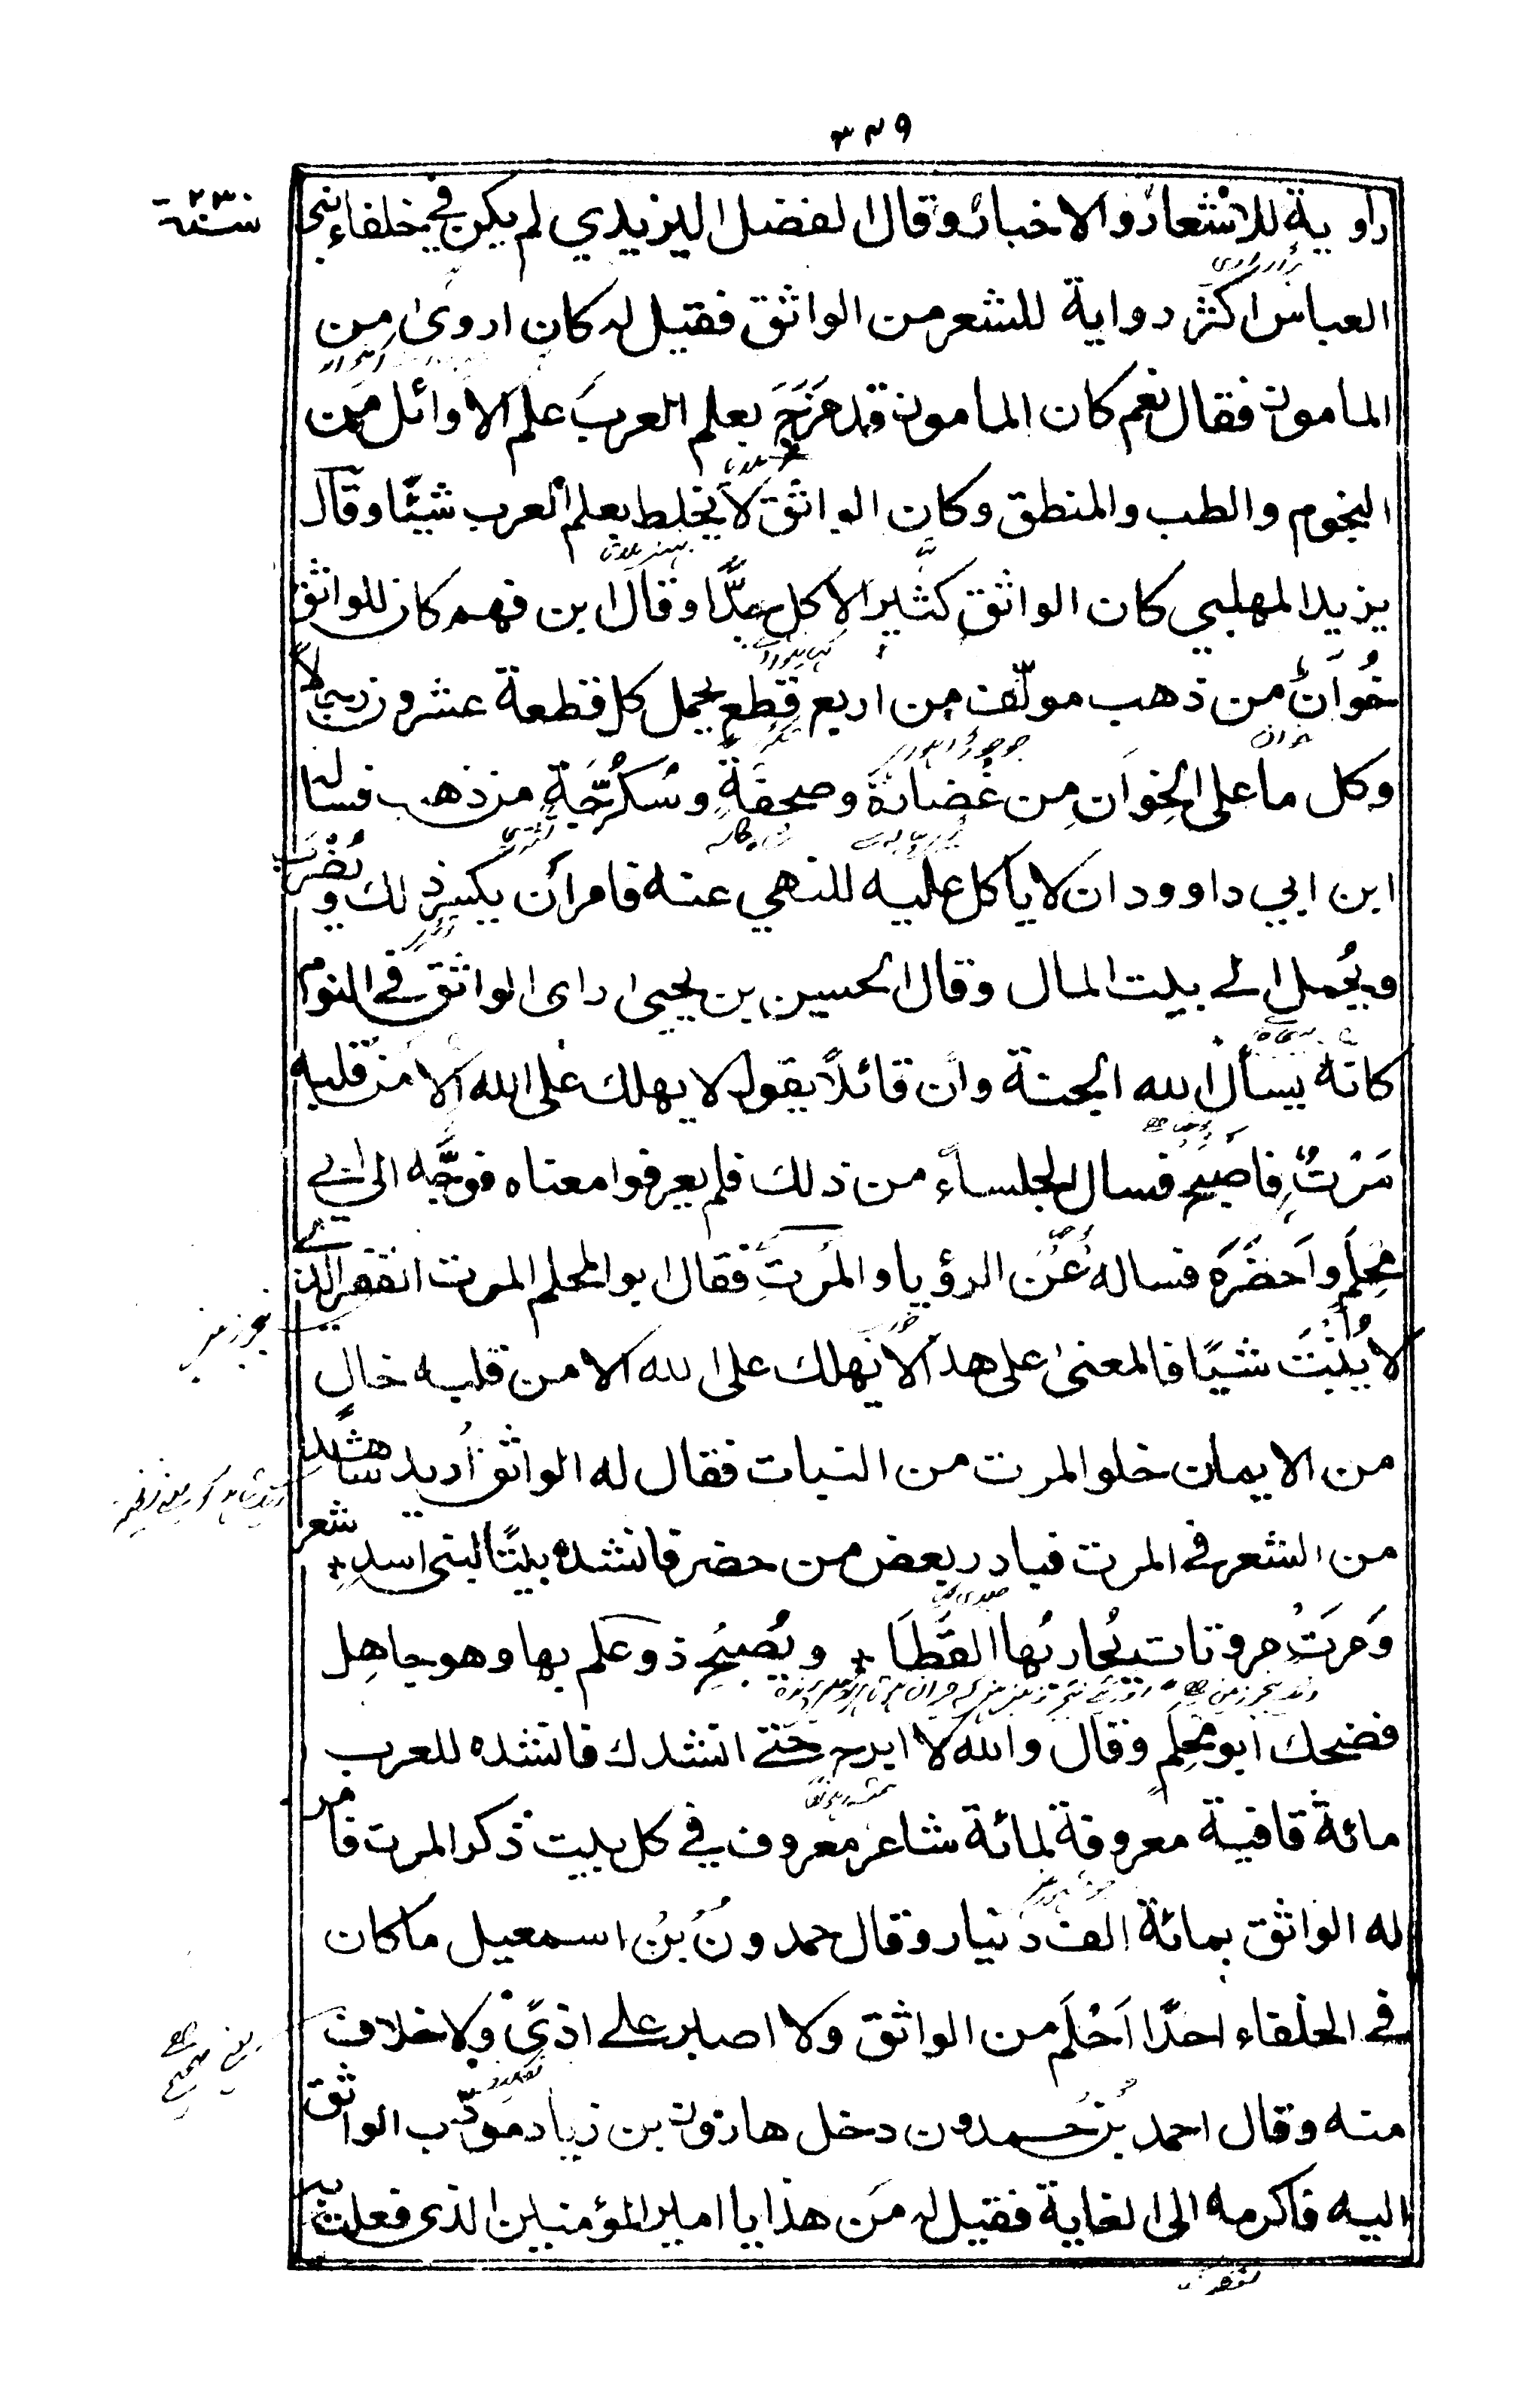 ٣٤٩
سنة ٢٣٠
راوية للاشعار والاخبار وقال الفضل اليزيدي لم يكن في خلفاء بني
العباس اكثر رواية للشعر من الواثق فقيل له كان اروى من
المامون فقال نعم كان المامون قد مزج بعلم العرب علم الاوائل من
النجوم والطب والمنطق وكان الواثق لا يخلط بعلم العرب شيئا وقال
يزيد المهلبي كان الواثق كثير الاكل جدًّا وقال ابن فهم كان للواثق
خُوَانٌ من ذهب مولّف من اربع قطع يحمل كل قطعة عشرون رجلا
وكل ما على الخِوَانِ مِن غُضارة وصحفةٍ وسُكُرُّجَةٍ من ذهب فساله
ابن ابي داوود ان لا ياكل عليه للنهي عنه فامر أن يكسر ذلك ويُضْرَب
ويُحمل الى بيت المال وقال الحسين بن يحيى راى الواثق في النوم
كانه يسأل الله الجنة وان قائلاً يقول لا يهلك على الله الا من قلبه
مَرْتٌ فاصبح فسال الجلساء من ذلك فلم يعرفوا معناه فوجَّه الى ابي
مُحلِّم واَحضَرَه فساله عَن الرؤيا والمَرْتِ فقال ابو المحلم المرت القفر الذي
لا يُنبِتُ شيئًا فالمعنى على هذا لا يهلك على الله الا من قلبه خالٍ
من الايمان خلو المرت من النبات فقال له الواثق اُريد شاهدًا
من الشعر في المرت فبادر بعض من حضر فانشده بيتًا لبني اسدٍ شعر
وَمَرتٍ مروتات يُحار بُها القَطَا ٭ ويُصبحُ ذو علم بها وهو جاهِل
فضحك ابو مُحلِّم وقال والله لا ابرح حتى انشدك فانشده للعرب
مائة قافية معروفة لمائة شاعر معروف في كل بيت ذكر المرت فامر
له الواثق بمائة الف دنيار وقال حمدونُ بْنُ اسمعيل ما كان
في الخلفاء احدًا اَحْلَم من الواثق ولا اصبر على اذًى ولا خلاف
منه وقال احمد بْنُ حمدون دخل هارون بن زياد مؤدّب الواثق
اليه فاكرمه الى الغاية فقيل له مَن هذا يا امير المؤمنين الذي فعلت به